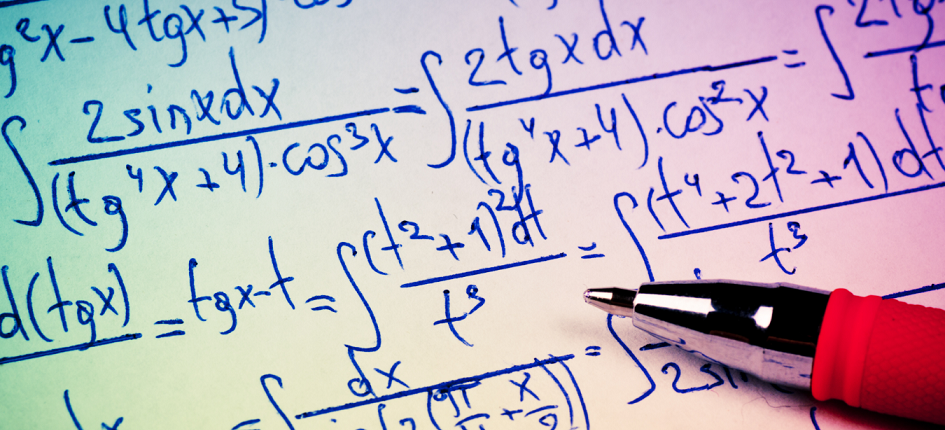 g²x-4tgx+5)
∫ 2sinxdx / (tg⁴x+4)·cos³x = ∫ 2tgxdx / (tg⁴x+4)·cos²x = ∫
d(tgx) = tgx-t = ∫ (t²+1)²dt / t³ = ∫ (t⁴+2t²+1)dt / t³
= ∫ dx / = ∫